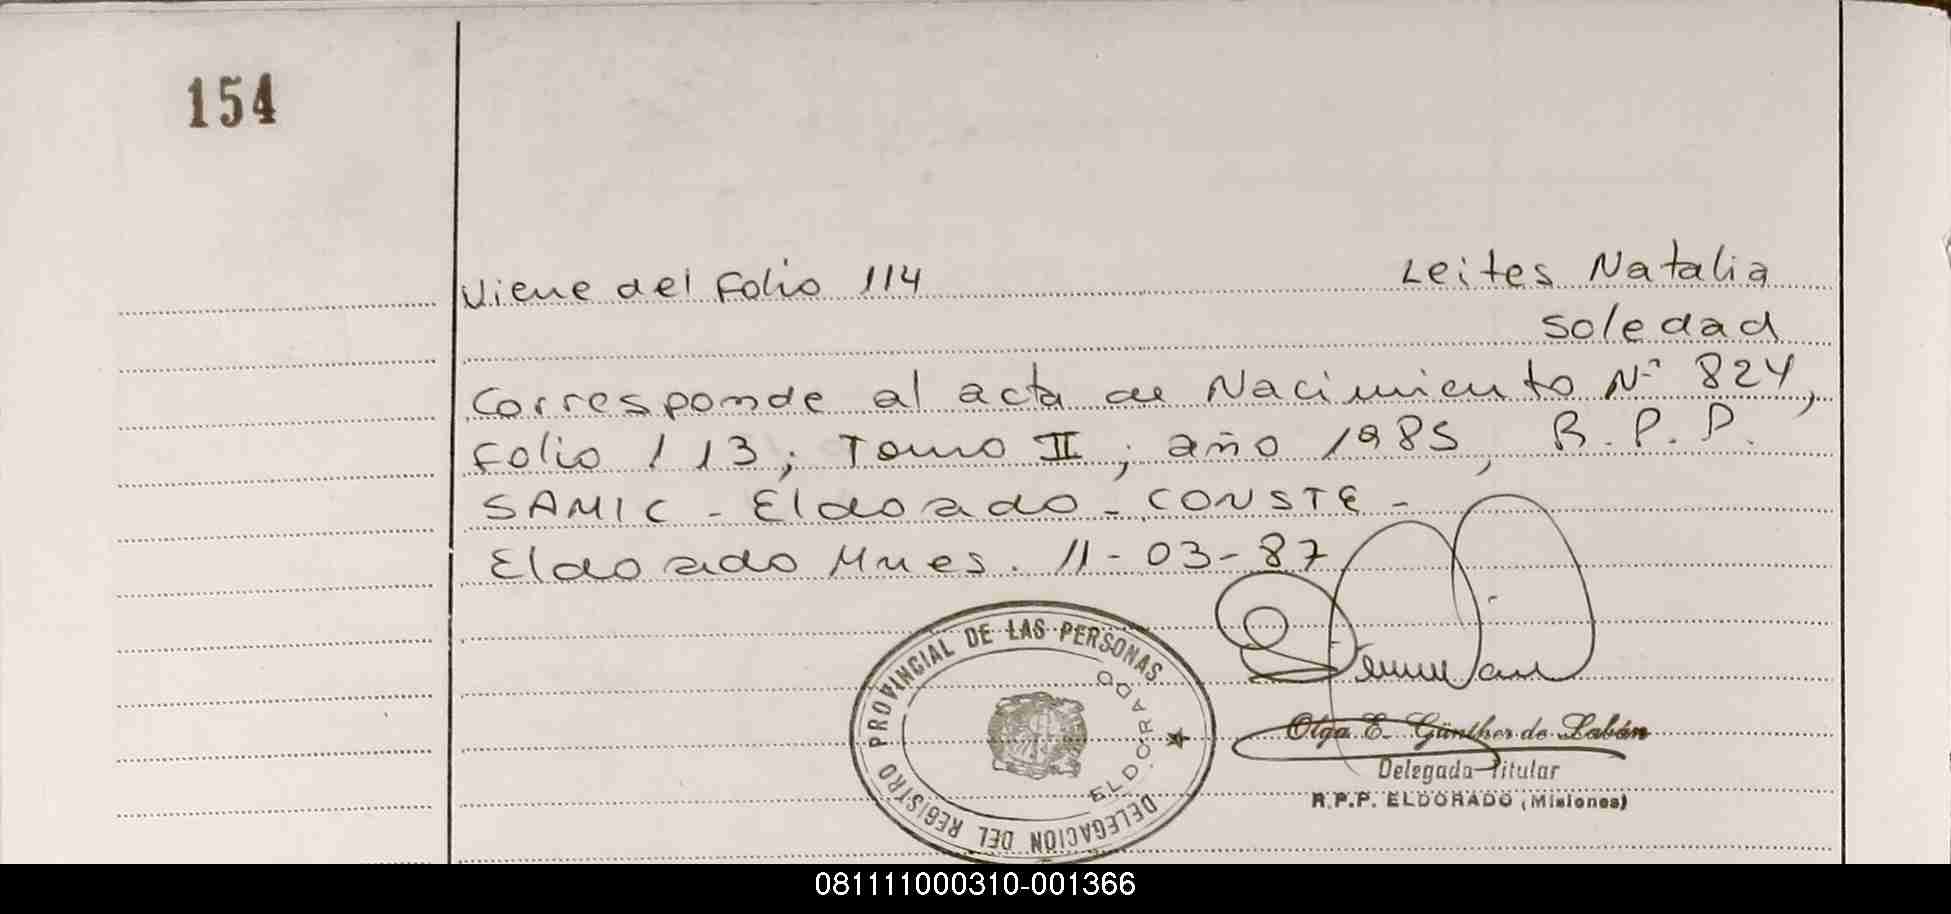 154
Viene del Folio 114 Leites Natalia
Soledad
Corresponde al acta de Nacimiento Nº 824,
Folio 113; Tomo II; año 1985, R.P.P.
SAMIC - Eldorado - CONSTE -
Eldorado Mnes. 11-03-87
DELEGACION DEL REGISTRO PROVINCIAL DE LAS PERSONAS
ELDORADO
Olga E. Günther de Labán
Delegada Titular
R.P.P. ELDORADO (Misiones)
081111000310-001366